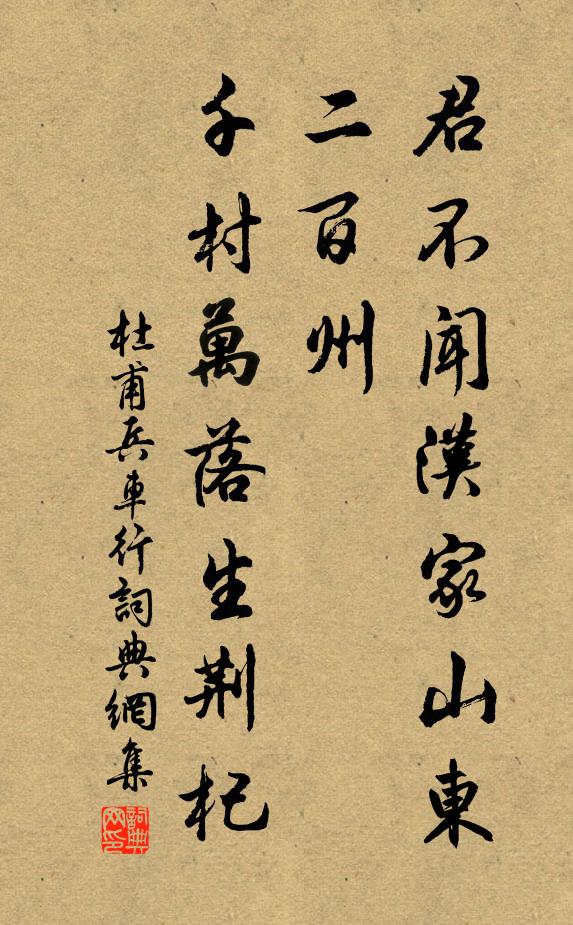 君不聞漢家山東
二百州
千村萬落生荆杞
杜甫兵車行詞典網集
詞典網印